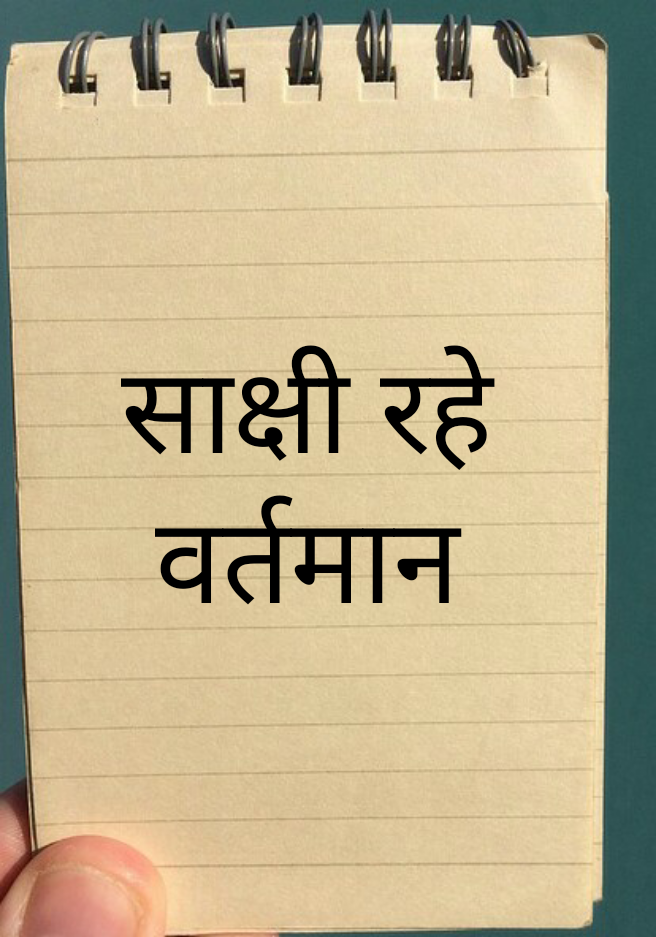 साक्षी रहे
वर्तमान